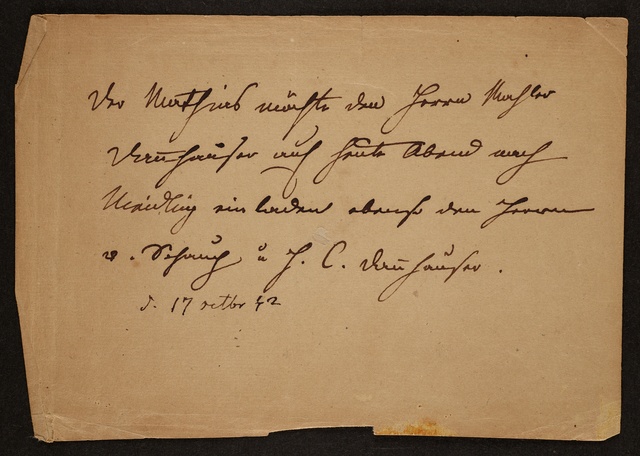 Der Mathias möchte den Herrn Mahler
Danhauser auf heute Abend nach
Meidling einladen ebenso den Herrn
v. Schauß u H. C. Danhauser.
d. 17 octbr 42